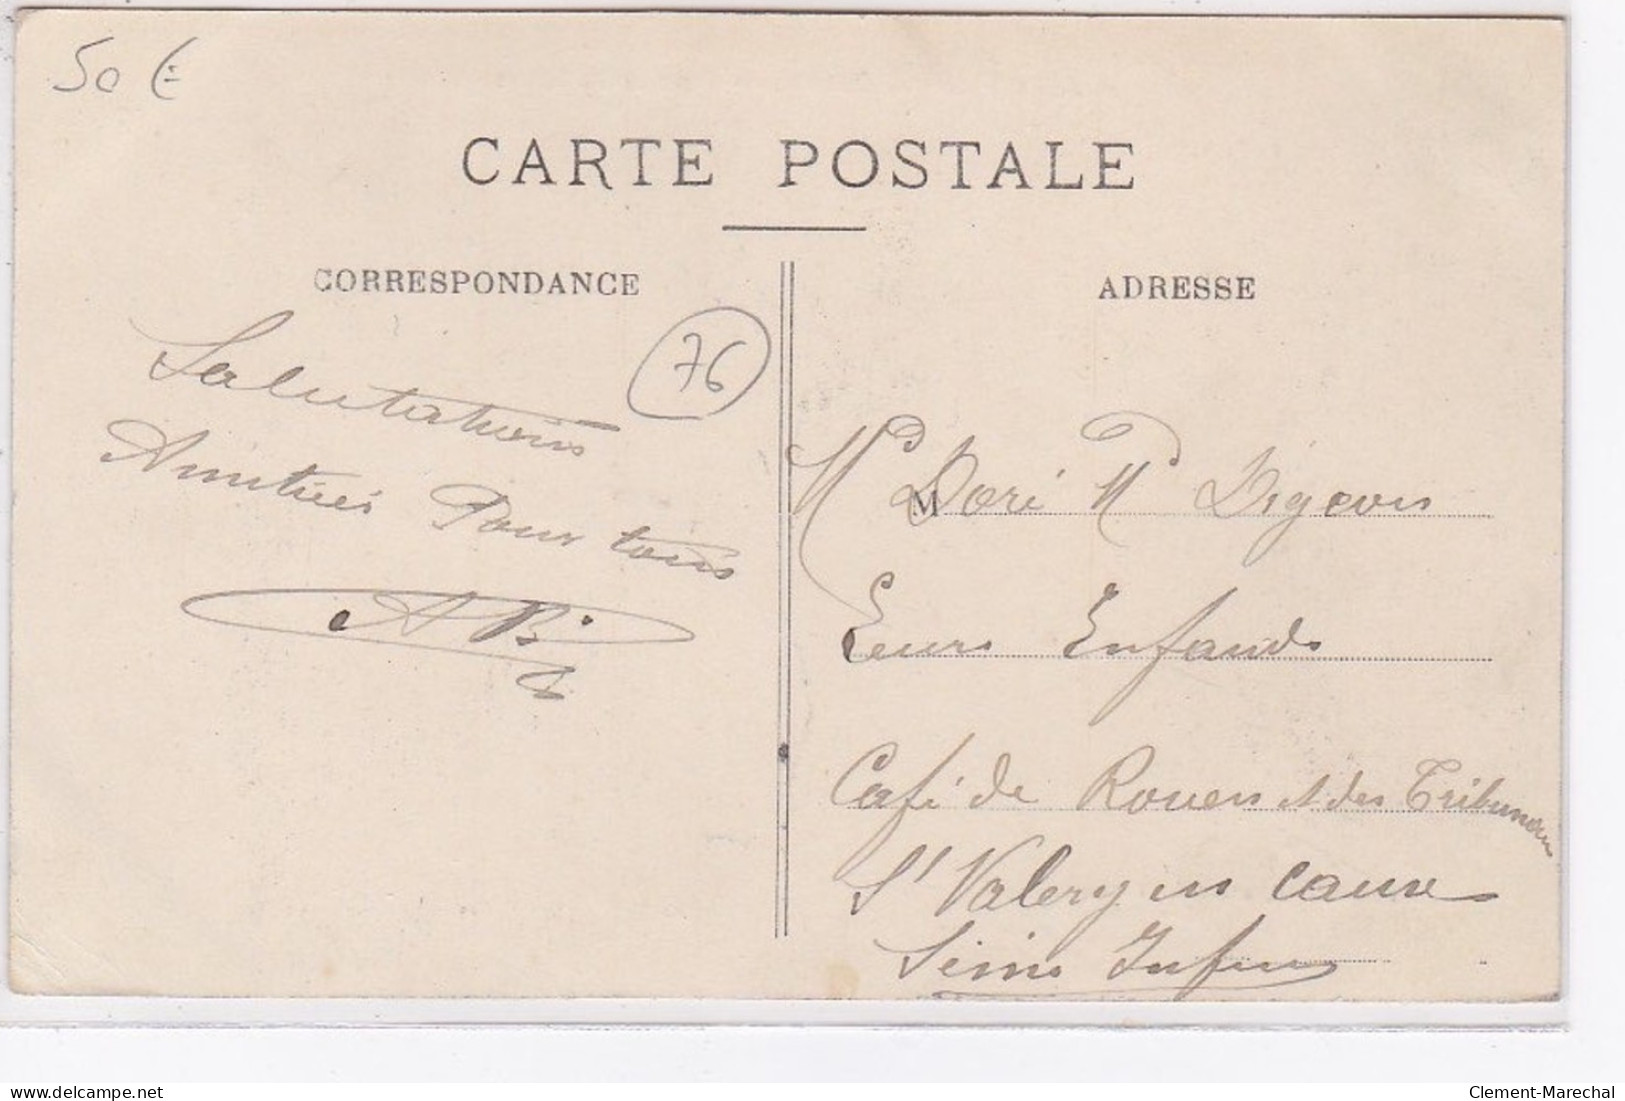 50 €
CARTE POSTALE
CORRESPONDANCE
76
Salutations
Amitiés Pour tous
AB
ADRESSE
M Doré M Digeon
Leurs Enfants
Café de Rouen et des Tribunaux
St Valery en Caux
Seine Infre
delcampe.net
Clement-Marechal